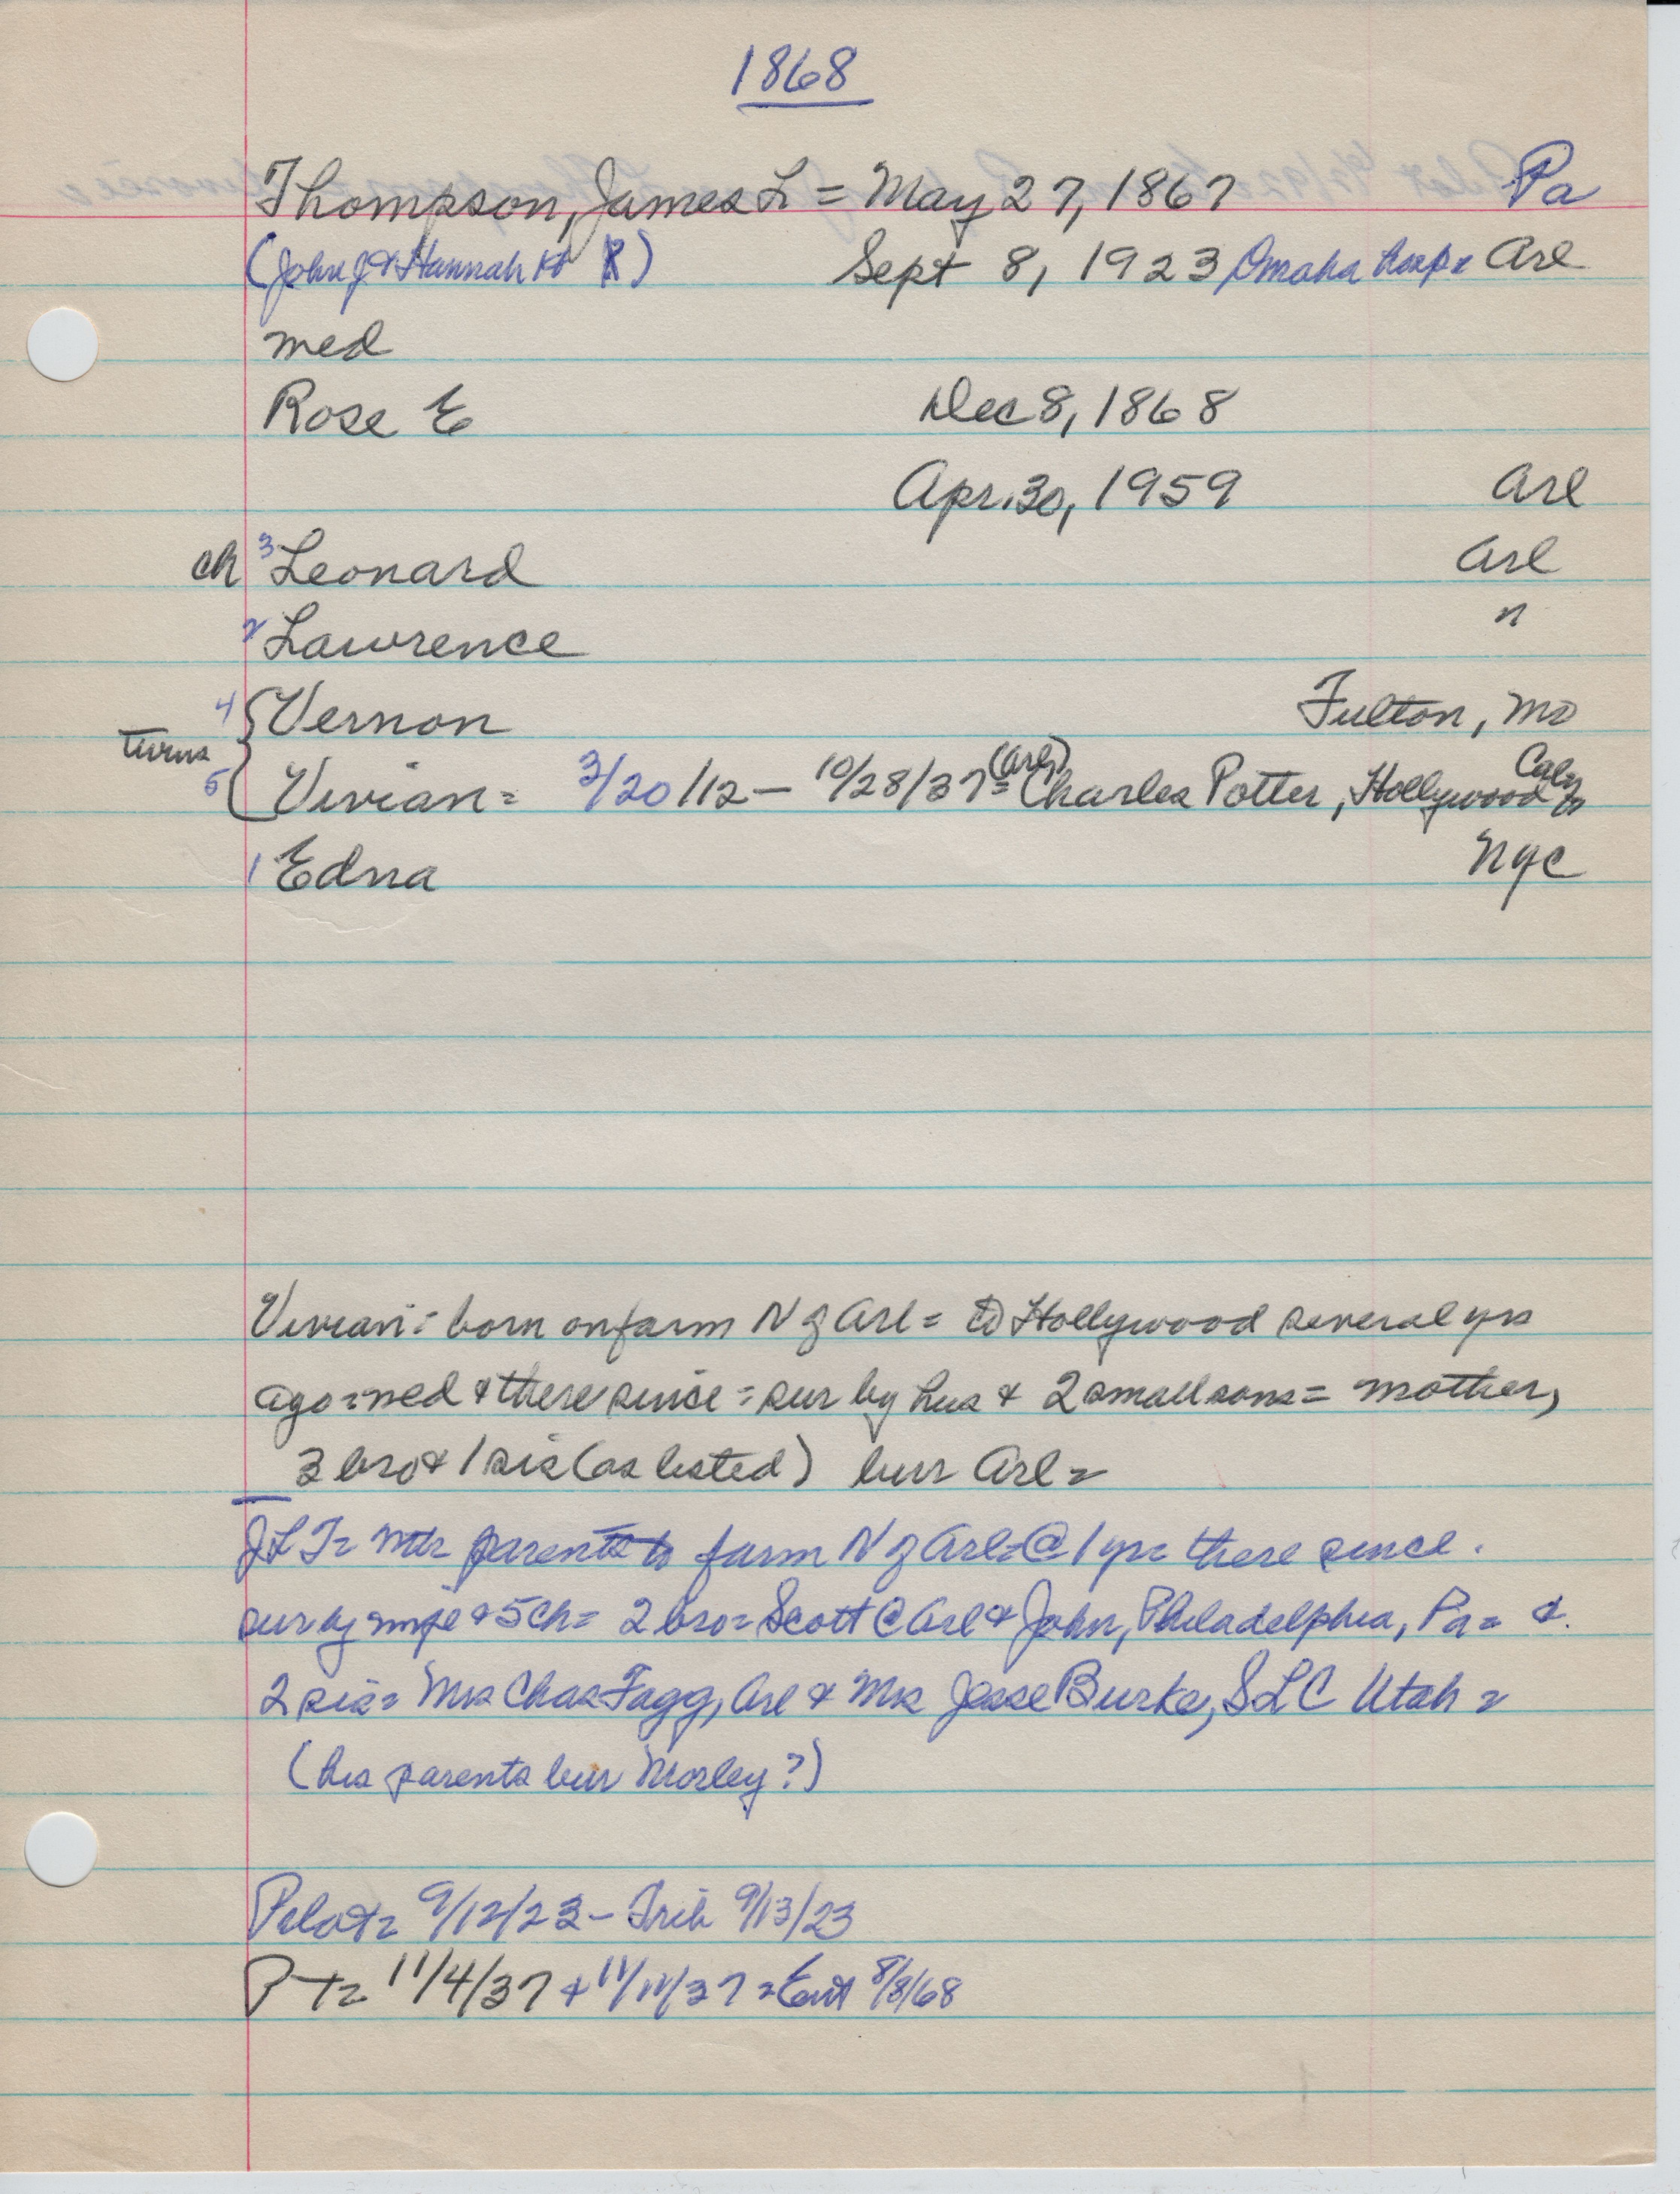 1868
Thompson, James L = May 27, 1867 Pa
(John J & Hannah) Sept 8, 1923 Omaha hosp = Arl
med
Rose E Dec 8, 1868
Apr. 30, 1959 Arl
ch 3 Leonard Arl
2 Lawrence "
4 Vernon Fulton, Mo
twins
5 Vivian = 3/20/12 – 10/28/37 (Arl) = Charles Potter, Hollywood Cal
1 Edna NYC
Vivian = born on farm N of Arl = to Hollywood several yrs
ago = med & there since = sur by hus & 2 small sons = mother,
3 bro & 1 sis (as listed) bur Arl =
JLT = parents to farm N of Arl = @ 1 yr = there since.
sur by wife & 5 ch = 2 bro = Scott @ Arl & John, Philadelphia, Pa = &
2 sis = Mrs Chas Fagg, Arl & Mrs Jesse Burke, SLC Utah =
(his parents bur Morley?)
Pilot = 9/12/23 – Trib 9/13/23
P T = 11/4/37 + 11/11/37 = Ent 8/8/68